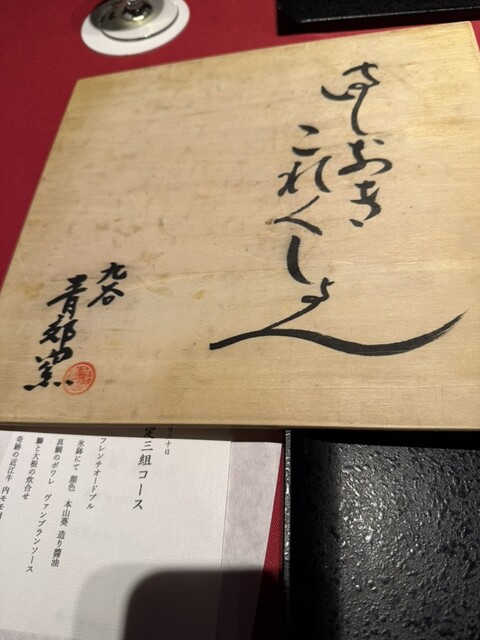 はしおき
これくしょん
九谷
青郊窯
十日
定三組コース
フレンチオードブル
氷鉢にて 顔色 本山葵 造り醤油
真鯛のポワレ ヴァンブランソース
鰤と大根の炊合せ
奇跡の近江牛 内モモ